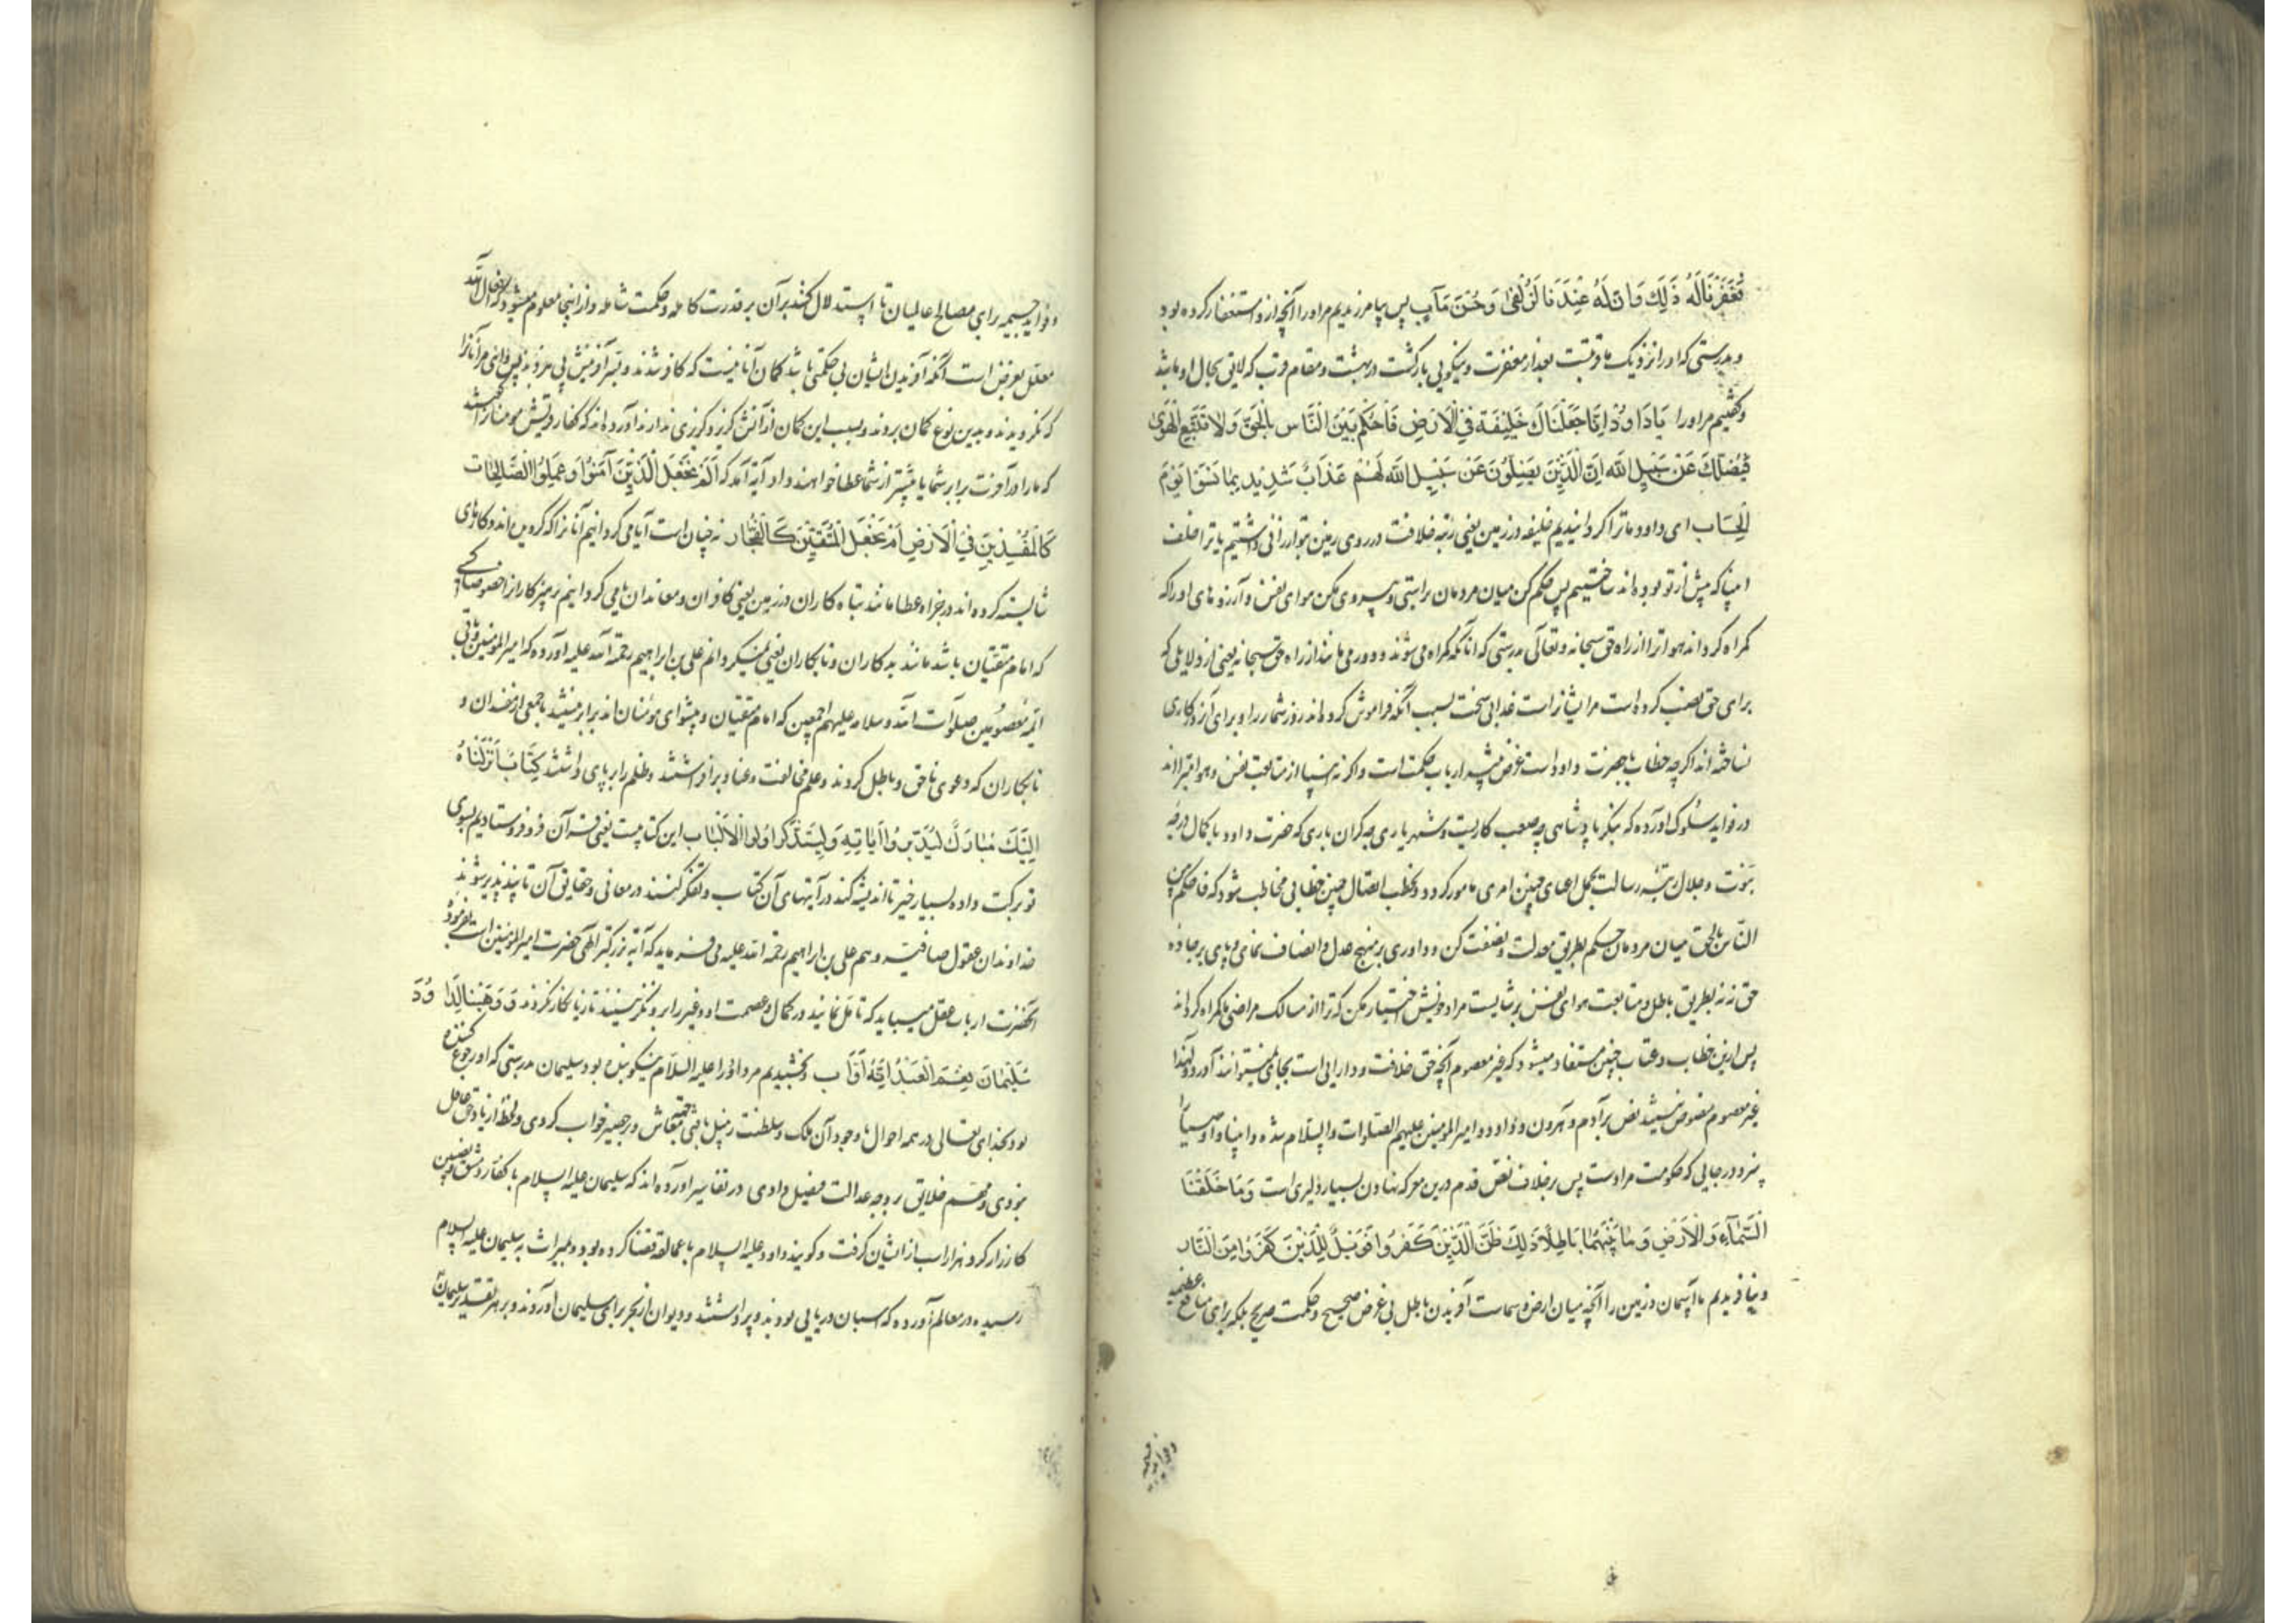 فَغَفَرْنَا لَهُ ذَلِكَ وَاِنَّ لَهُ عِنْدَنَا لَزُلْفَىٰ وَحُسْنَ مَآبٍ پس بیامرزیدیم مر او را آنچه ازو استغفار کرده بود
و بدرستی که او را نزدیک ما قربتست بعد از مغفرت و نیکویی بازگشت در بهشت و مقام قرب که لایق بحال او باشد
و گفتیم مر او را یَادَاوُدُ اِنَّا جَعَلْنَاكَ خَلِیفَةً فِی الْاَرْضِ فَاحْكُمْ بَیْنَ النَّاسِ بِالْحَقِّ وَلَا تَتَّبِعِ الْهَوَىٰ
فَیُضِلَّكَ عَنْ سَبِیلِ اللّٰه اِنَّ الَّذِینَ یَضِلُّونَ عَنْ سَبِیلِ اللّٰه لَهُمْ عَذَابٌ شَدِیدٌ بِمَا نَسُوا یَوْمَ
الْحِسَاب ای داود ما ترا گردانیدیم خلیفه در زمین یعنی رتبه خلافت در روی زمین بتو ارزانی داشتیم یا ترا خلف
انبیا که پیش از تو بوده‌اند ساختیم پس حکم کن میان مردمان براستی و پیروی مکن هوای نفس و آرزوهای او را که
گمراه گرداند هوا ترا از راه حق سبحانه و تعالی بدرستی که آنانکه گمراه می‌شوند و دور می‌مانند از راه حق سبحانه یعنی از دلایلی که
برای حق نصب کرده است مر ایشانراست عذابی سخت بسبب آنکه فراموش کرده‌اند روز شمار را و برای آنروز کاری
نساخته‌اند اگرچه خطاب با حضرت داود است غرض تنبیه ارباب حکمت است و اگر نه انبیا از متابعت نفس و هوا مبرااند
در فواید سلوک آورده که بنگر پادشاهی چه صعب کاریست و شهریاری چه گران باری که حضرت داود با کمال درجه
نبوت و جلال رتبه رسالت بحمل اعبای چنین امری مامور گردد و بخطب اتصال چنین خطابی مخاطب شود که فاحکم بین
النّاس بالحق میان مردمان حکم بطریق معدلت و نصفت کن و داوری بر منهج عدل و انصاف نمای و پای بر جاده
حق نه نه بطریق باطل و متابعت هوای نفس بر متابعت مراد خویش اختیار مکن که ترا از مسالک مراضی ما گمراه گرداند
پس ازین خطاب و عتاب چنین مستفاد میشود که غیر معصوم آنچه حق خلافت و دارایی است بجای نمیتوانند آورد و لهذا
غیر معصوم منصوص نمیشد نص بر آدم و هرون و داود و امیرالمؤمنین علیهم الصلوات والسلام شده و انبیا و اوصیا را
سزد در جایی که حکومت مراد است پس بر خلاف نص قدم درین معرکه نهادن بسیار دلیری است وَمَا خَلَقْنَا
السَّمَآءَ وَالْاَرْضَ وَمَا بَیْنَهُمَا بَاطِلًا ذَلِكَ ظَنُّ الَّذِینَ كَفَرُوا فَوَیْلٌ لِلَّذِینَ كَفَرُوا مِنَ النَّار
و نیافریدیم ما آسمان و زمین را و آنچه میان ارض و سماست آفریدن باطل بی غرض صحیح و حکمت صریح بلکه برای منافع عظیمه
و فواید جسیمه
و فواید جسیمه برای مصالح عالمیان تا استدلال کنند بر آن بر قدرت کامله و حکمت شامله و از اینجا معلوم میشود که افعال الله
معلل بغرض است آنکه آفریدن ایشان بی حکمتی باشد گمان آنانیست که کافر شدند و بسر آفرینش پی نبردند پس وای مر آنانرا
که نگرویدند و بدین نوع گمان بردند و بسبب این گمان از آتش گریز و گزیری ندارند آورده‌اند که کفار قریش مومنانرا گفتند
که ما را در آخرت برابر شما یا بیشتر از شما عطا خواهند داد آیه آمد که اَمْ نَجْعَلُ الَّذِینَ آمَنُوا وَعَمِلُوا الصَّالِحَات
كَالْمُفْسِدِینَ فِی الْاَرْضِ اَمْ نَجْعَلُ الْمُتَّقِینَ كَالْفُجَّار نه چنان است آیا می گردانیم آنانرا که گرویده‌اند و کارهای
شایسته کرده‌اند در جزا و عطا مانند تباه کاران در زمین یعنی کافران و معاندان یا می گردانیم پرهیزکاران را خصوصا کسی
که امام متقیان باشد مانند بدکاران و نابکاران یعنی نمیگردانیم علی بن ابراهیم رحمة الله علیه آورده که امیرالمؤمنین و باقی
ائمه معصومین صلوات الله وسلامه علیهم اجمعین که امام متقیان و پیشوای مومنان‌اند برابر نیستند با جمعی از مفسدان و
نابکاران که دعوی ناحق و باطل کردند و علم مخالفت و عناد برافراشتند و ظلم را بر پای داشتند كِتَابٌ اَنْزَلْنَاهُ
اِلَیْكَ مُبَارَكٌ لِیَدَّبَّرُوا آیَاتِهِ وَلِیَتَذَكَّرَ اُولُوا الْاَلْبَاب این کتابیست یعنی قرآن فرو فرستادیم بسوی
تو برکت داده بسیار خیر تا اندیشه کنند در آیتهای آن کتاب و تفکر کنند در معانی و حقایق آن تا پند پذیر شوند
خداوندان عقول صافیه و هم علی بن ابراهیم رحمة الله علیه می فرماید که آیه بزرگتر الهی حضرت امیرالمؤمنین است بفرموده
آنحضرت ارباب عقل میباید که تامل نمایند در کمال و عصمت او و غیر را برو نگزینند تا زیانکار نگردند وَوَهَبْنَا لِدَاوُدَ
سُلَیْمَانَ نِعْمَ الْعَبْدُ اِنَّهُ اَوَّاب و بخشیدیم مر داود را علیه السلام نیکو بنده بود سلیمان بدرستی که او رجوع کننده
بود بخدای تعالی در همه احوال با وجود آن ملک و سلطنت زنبیل بافتی بجهت معاش و بر حصیر خواب کردی و لحظه از یاد حق غافل
نبودی و مهم خلایق بر وجه عدالت فیصل دادی در تفاسیر آورده‌اند که سلیمان علیه السلام با کفار دمشق و نصیبین
کارزار کرد و هزار اسب از ایشان گرفت و گویند داود علیه السلام با عمالقه قضا کرده بود و بمیراث به سلیمان علیه السلام
رسیده در معالم آورده که اسبان دریایی بودند و پر داشتند و دیوان از بحر برای سلیمان آوردند و بر هر تقدیر سلیمان